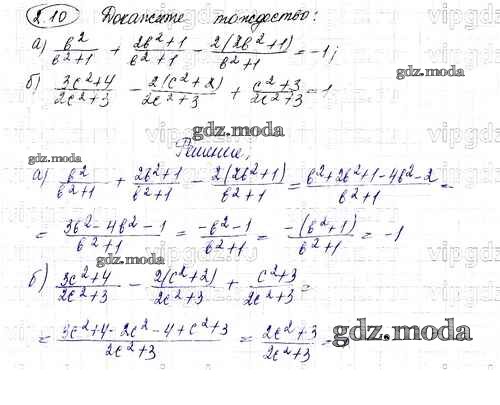 2.10 Докажите тождество:
а) b²/(b²+1) + (2b²+1)/(b²+1) - 2(2b²+1)/(b²+1) = -1;
б) (3c²+4)/(2c²+3) - 2(c²+2)/(2c²+3) + (c²+3)/(2c²+3) = 1
gdz.moda
Решение,
gdz.moda
а) b²/(b²+1) + (2b²+1)/(b²+1) - 2(2b²+1)/(b²+1) = (b²+2b²+1-4b²-2)/(b²+1) =
= (3b²-4b²-1)/(b²+1) = (-b²-1)/(b²+1) = -(b²+1)/(b²+1) = -1
gdz.moda
б) (3c²+4)/(2c²+3) - 2(c²+2)/(2c²+3) + (c²+3)/(2c²+3) =
= (3c²+4-2c²-4+c²+3)/(2c²+3) = (2c²+3)/(2c²+3) =
gdz.moda